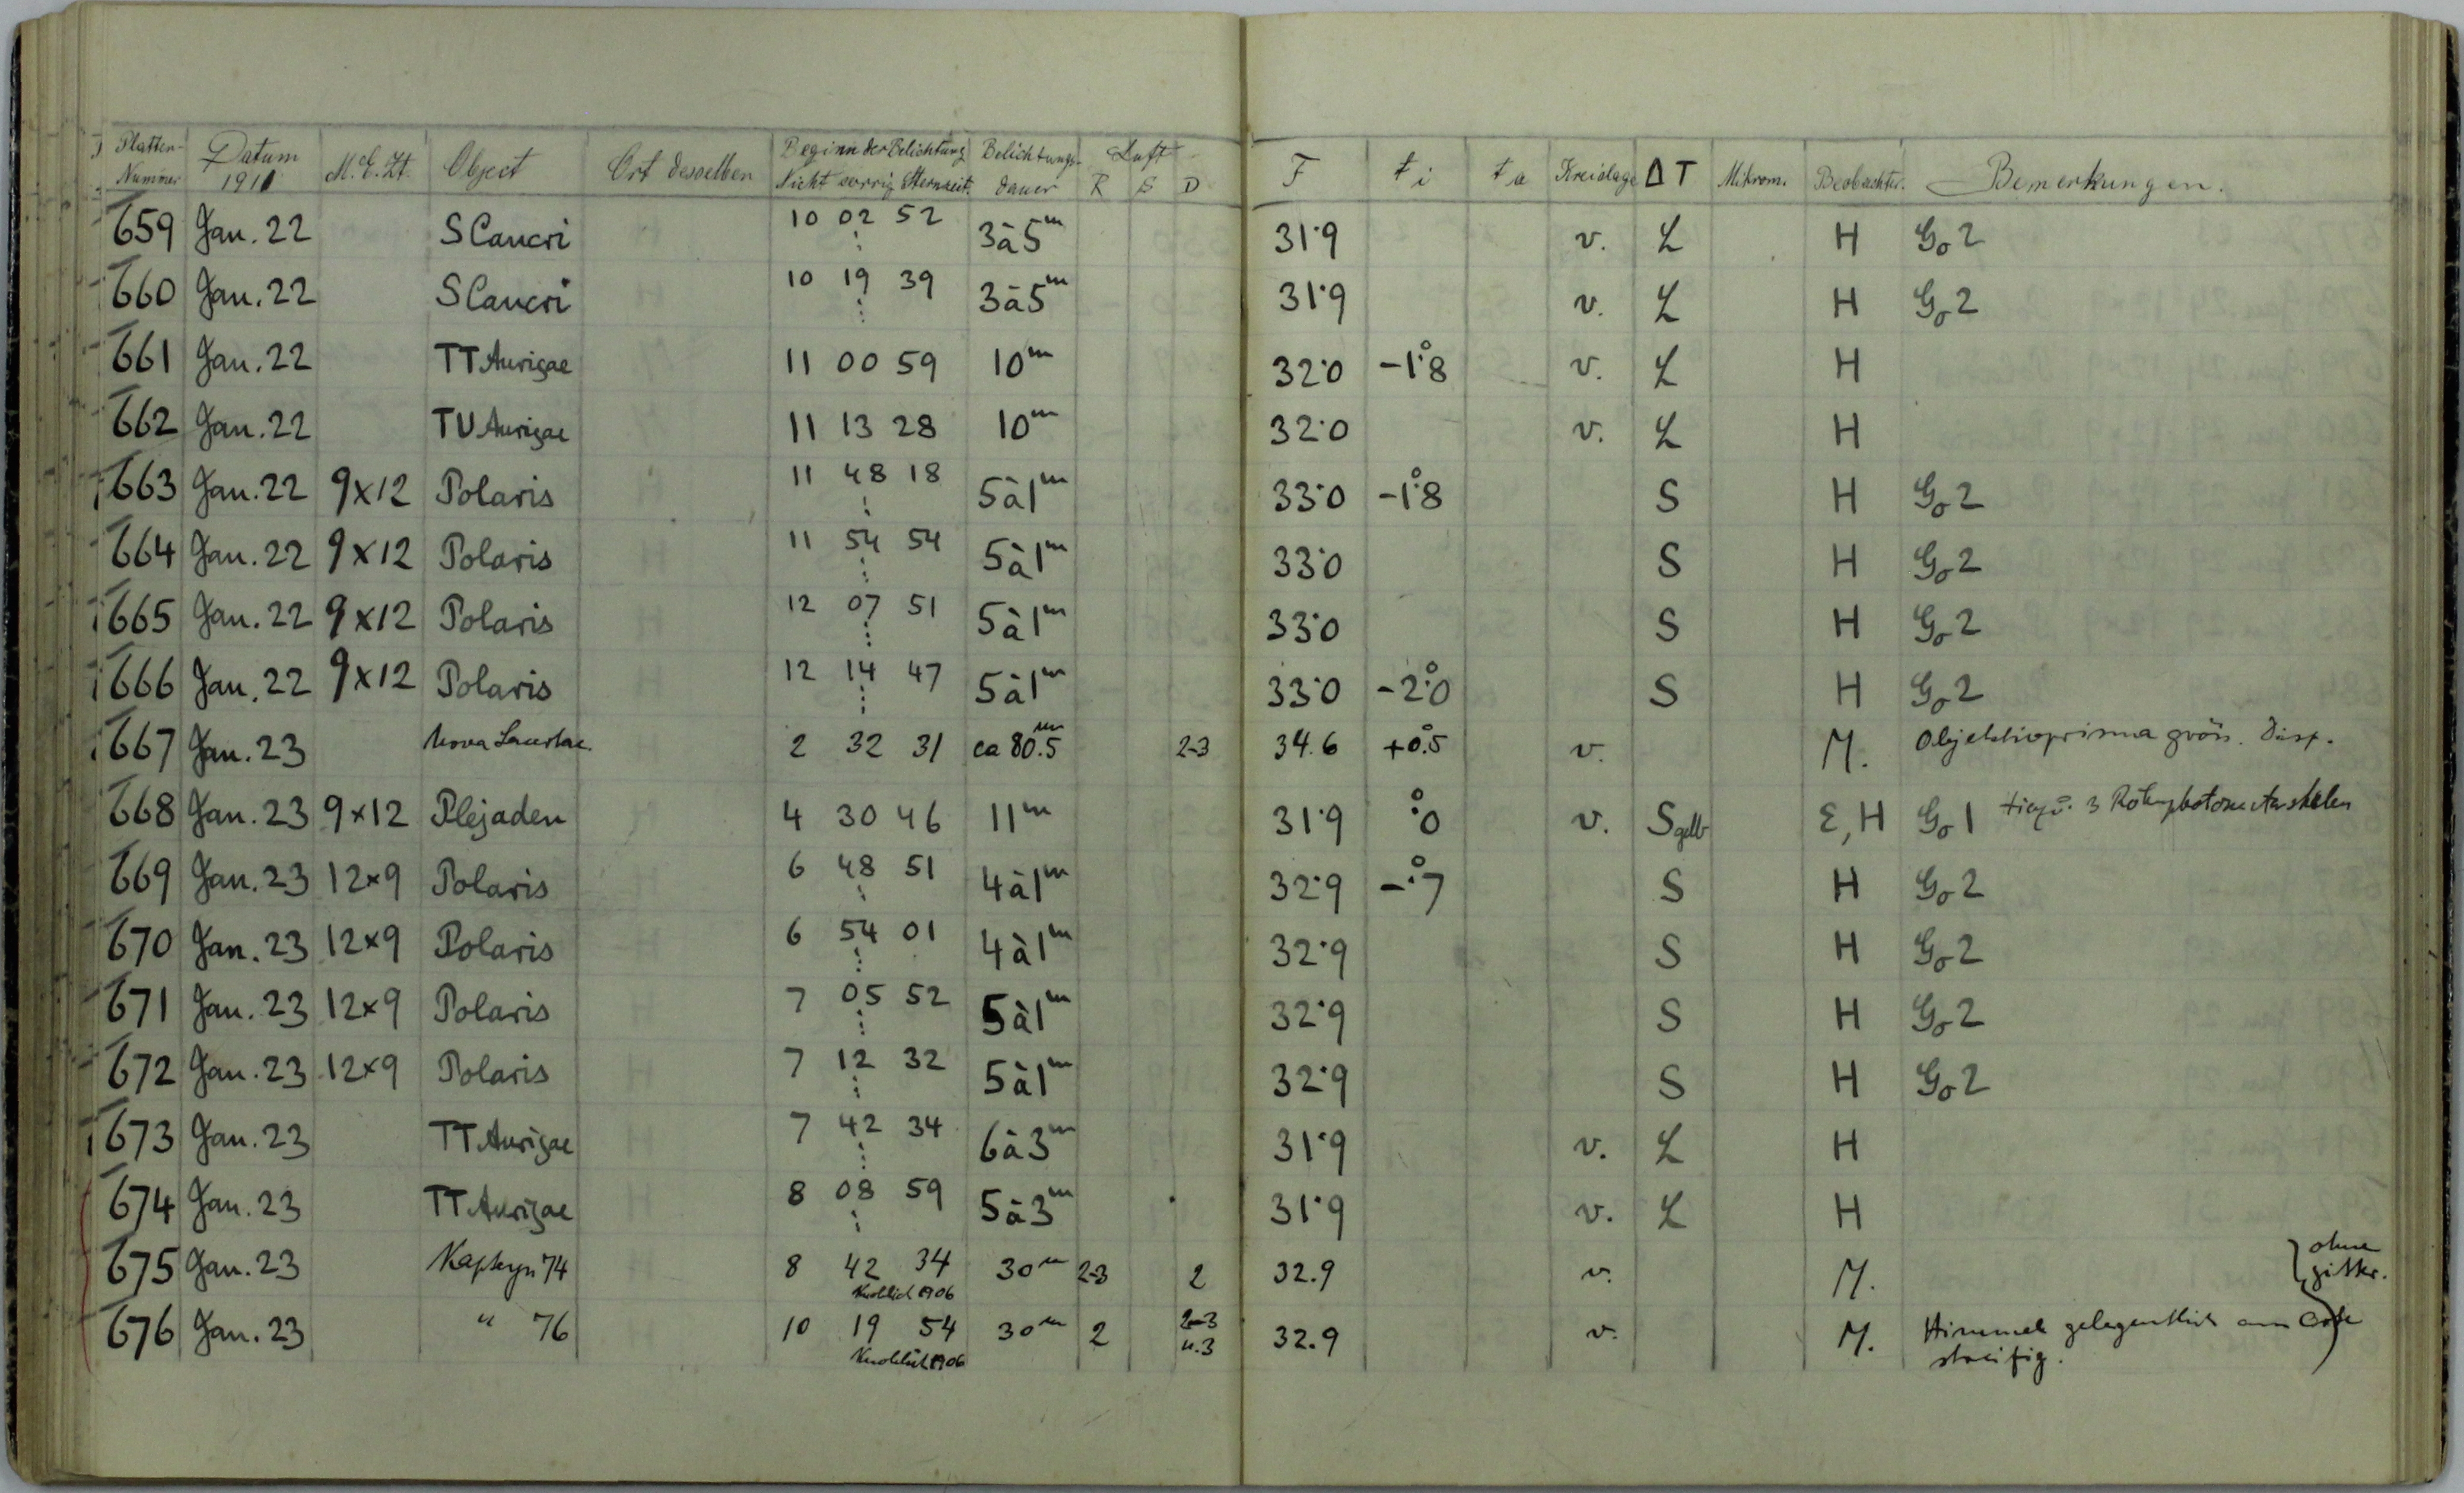 Platten-Nummer Datum 1911 M.E.Zt. Object Ort desselben Beginn der Belichtung Nicht corrig Sternzeit. Belichtungsdauer Luft R S D F ti ta Kreislage ΔT Mikrom. Beobachter. Bemerkungen.
659 Jan. 22 S Cancri 10 02 52 3à5m 31.9 v. L H Go2
660 Jan. 22 S Cancri 10 19 39 3à5m 31.9 v. L H Go2
661 Jan. 22 TT Aurigae 11 00 59 10m 32.0 -1°.8 v. L H
662 Jan. 22 TU Aurigae 11 13 28 10m 32.0 v. L H
663 Jan. 22 9x12 Polaris 11 48 18 5à1m 33.0 -1°.8 S H Go2
664 Jan. 22 9x12 Polaris 11 54 54 5à1m 33.0 S H Go2
665 Jan. 22 9x12 Polaris 12 07 51 5à1m 33.0 S H Go2
666 Jan. 22 9x12 Polaris 12 14 47 5à1m 33.0 -2°.0 S H Go2
667 Jan. 23 Nova Lacertae. 2 32 31 ca 80.5m 2-3 34.6 +0°.5 v. M. Objektivprisma gröss. Disp.
668 Jan. 23 9x12 Plejaden 4 30 46 11m 31.9 °.0 v. S gelb E, H Go1 3 Röhrenphotometerskalen
669 Jan. 23 12x9 Polaris 6 48 51 4à1m 32.9 -°.7 S H Go2
670 Jan. 23 12x9 Polaris 6 54 01 4à1m 32.9 S H Go2
671 Jan. 23 12x9 Polaris 7 05 52 5à1m 32.9 S H Go2
672 Jan. 23 12x9 Polaris 7 12 32 5à1m 32.9 S H Go2
673 Jan. 23 TT Aurigae 7 42 34 6à3m 31.9 v. L H
674 Jan. 23 TT Aurigae 8 08 59 5à3m 31.9 v. L H
675 Jan. 23 Kapteyn 74 8 42 34 30m 2-3 2 32.9 v. M. ohne gitter.
Knoblich 1906
676 Jan. 23 " 76 10 19 54 30m 2 2-3 u.3 32.9 v. M. Himmel gelegentlich am Ende
Knoblich 1906 streifig.